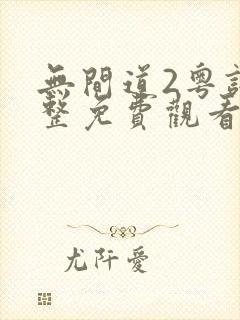 無間道2粤
整免費觀看
尤阡愛